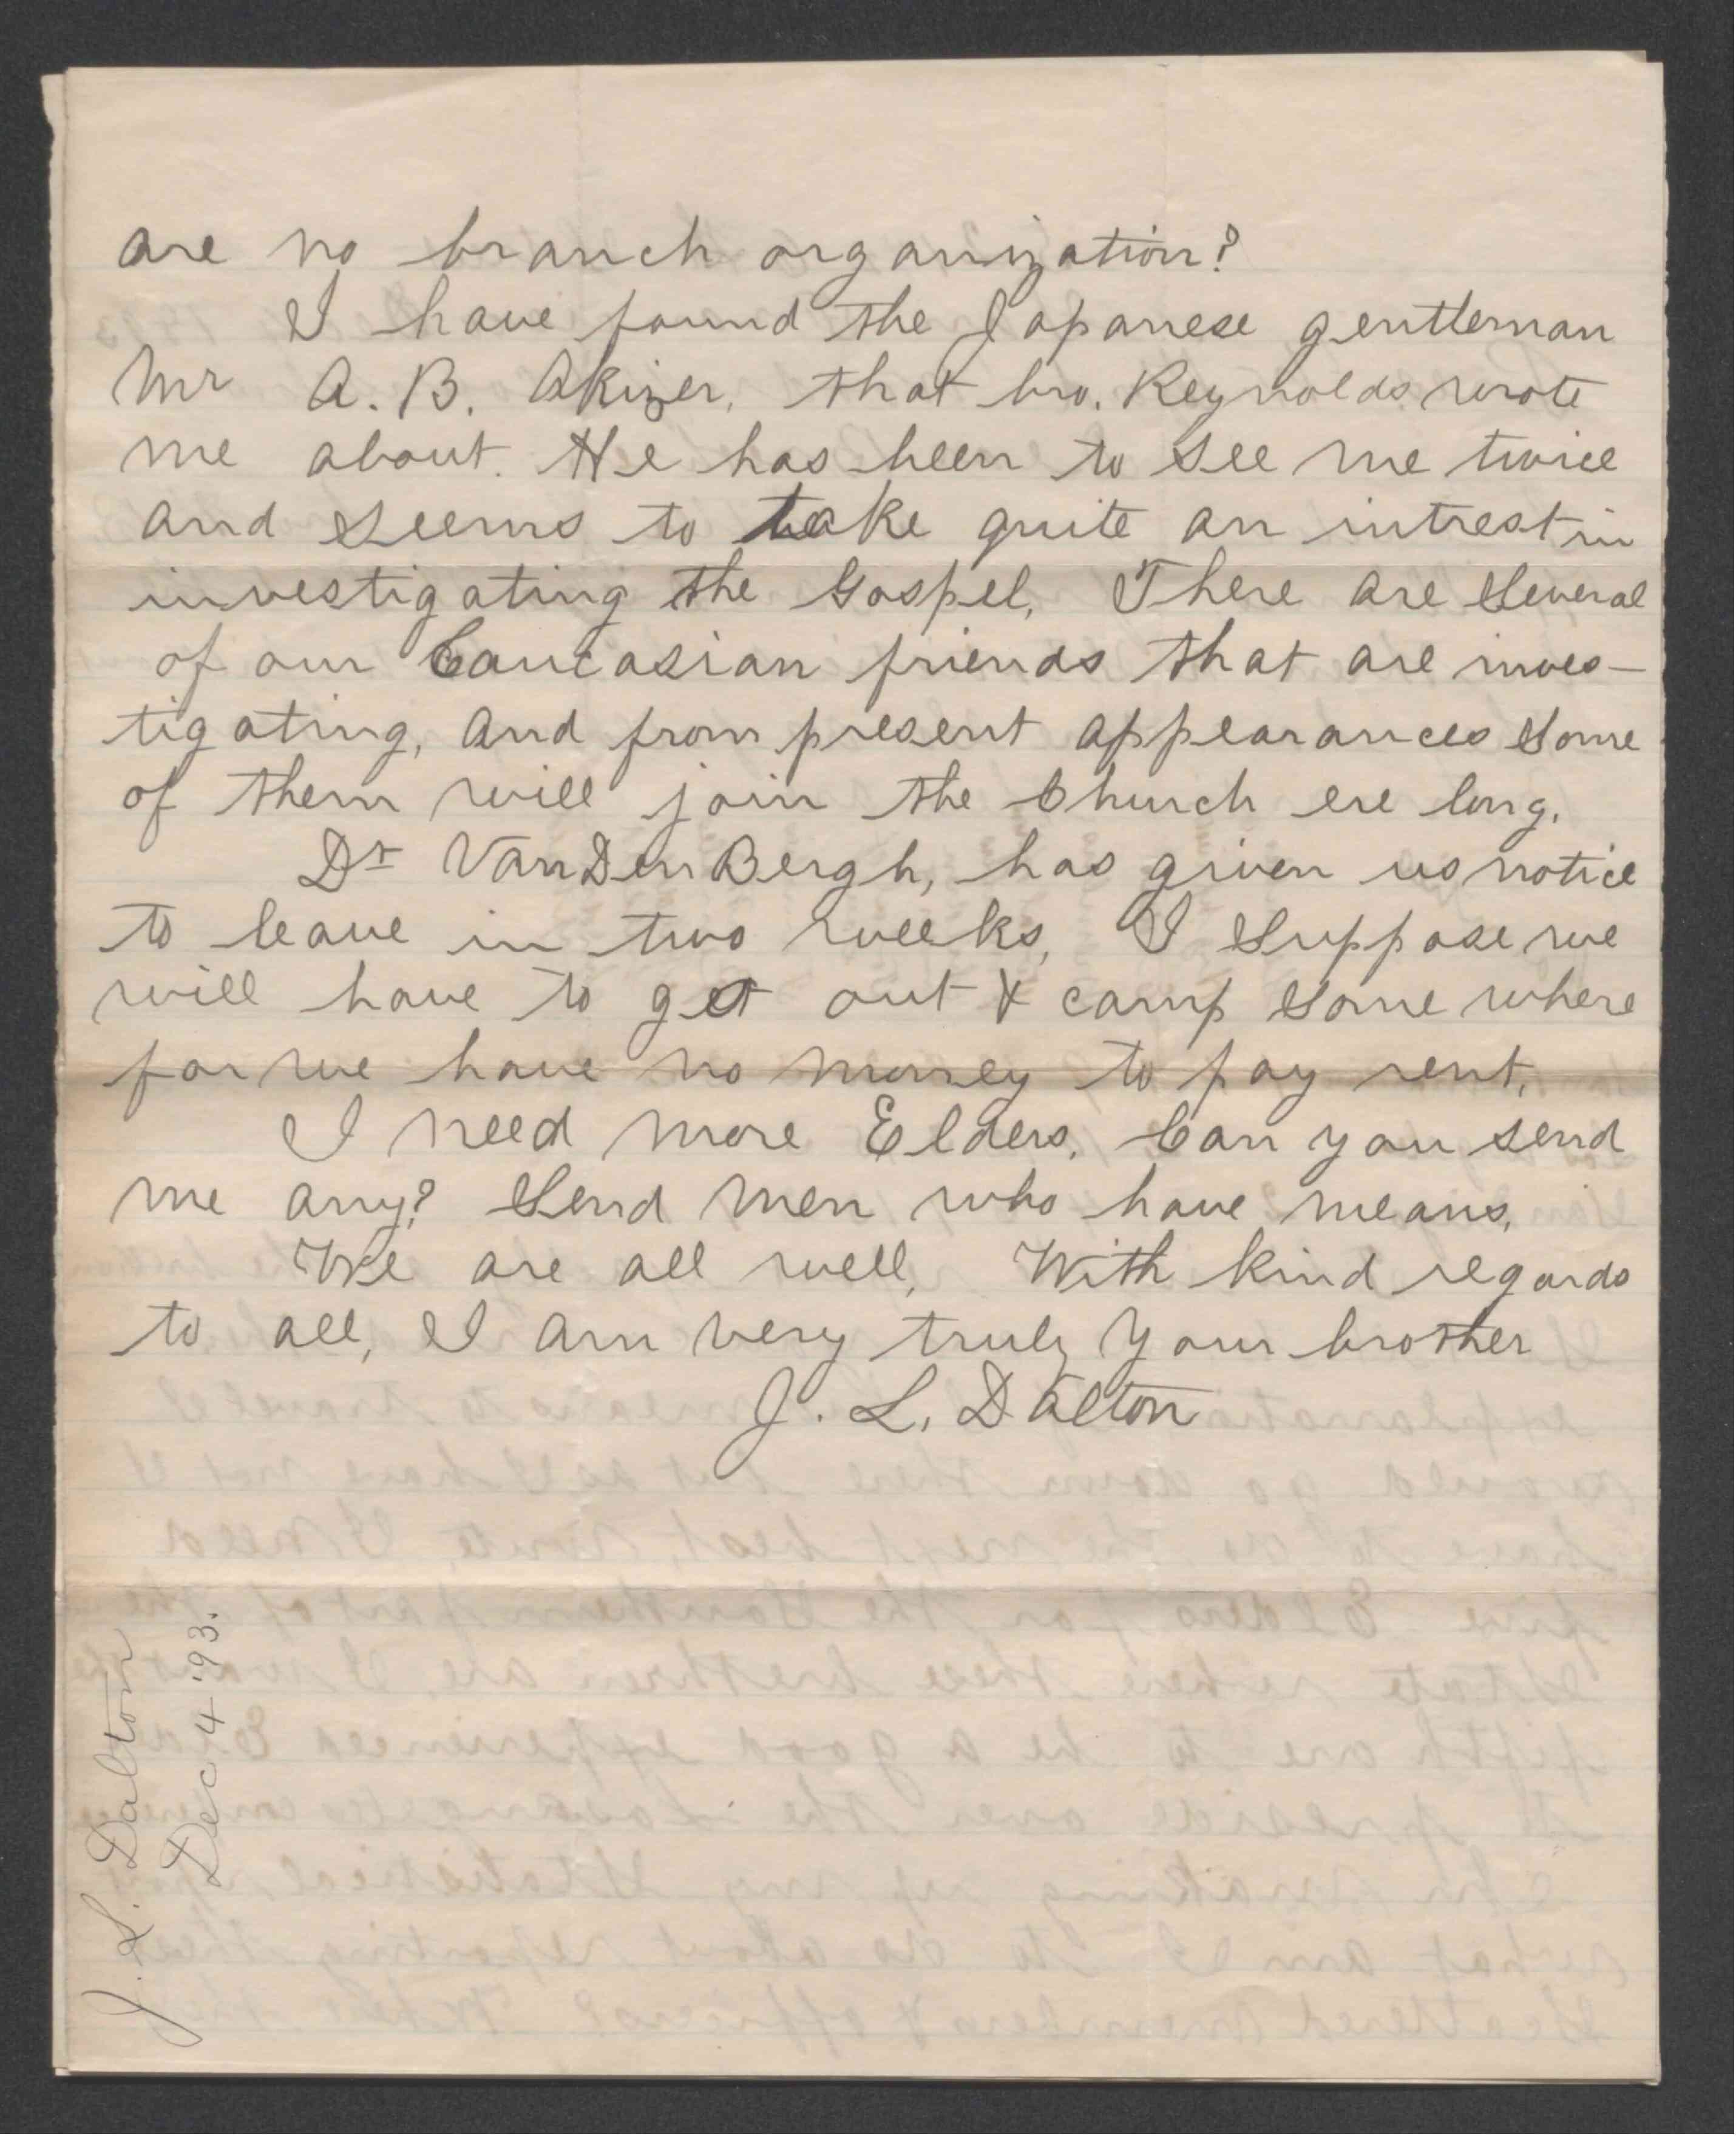 are no branch organization?
I have found the Japanese gentleman
Mr A. B. Akizer, that bro. Reynolds wrote
me about. He has been to see me twice
and seems to take quite an intrest in
investigating the Gospel, There are Several
of our Caucasian friends that are inves-
tigating, and from present appearances Some
of them will join the Church ere long.
Dr VanDenBergh, has given us notice
to leave in two weeks, I Suppose we
will have to get out & camp Some where
for we have no money to pay rent.
I need more Elders. Can you send
me any? Send men who have means.
We are all well, With kind regards
to all, I am very truly Your brother
J. L. Dalton
J. L. Dalton
Dec 4 '93.